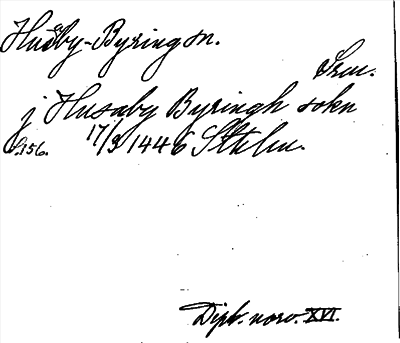 Husby-Byring sn.
Srm.
j Husaby Byringh sokn
S. 156. 17/3 1446 Sthlm.
Dipl. norv. XVI.